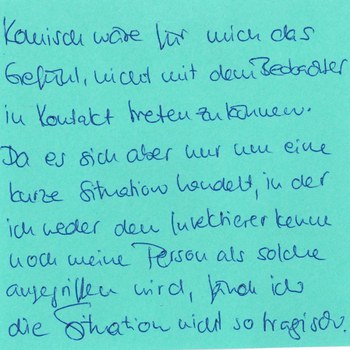 Komisch wäre für mich das
Gefühl, nicht mit dem Beobachter
in Kontakt treten zu können.
Da es sich aber nur um eine
kurze Situation handelt, in der
ich weder den Invektierer kenne
noch meine Person als solche
angegriffen wird, fänd ich
die Situation nicht so tragisch.